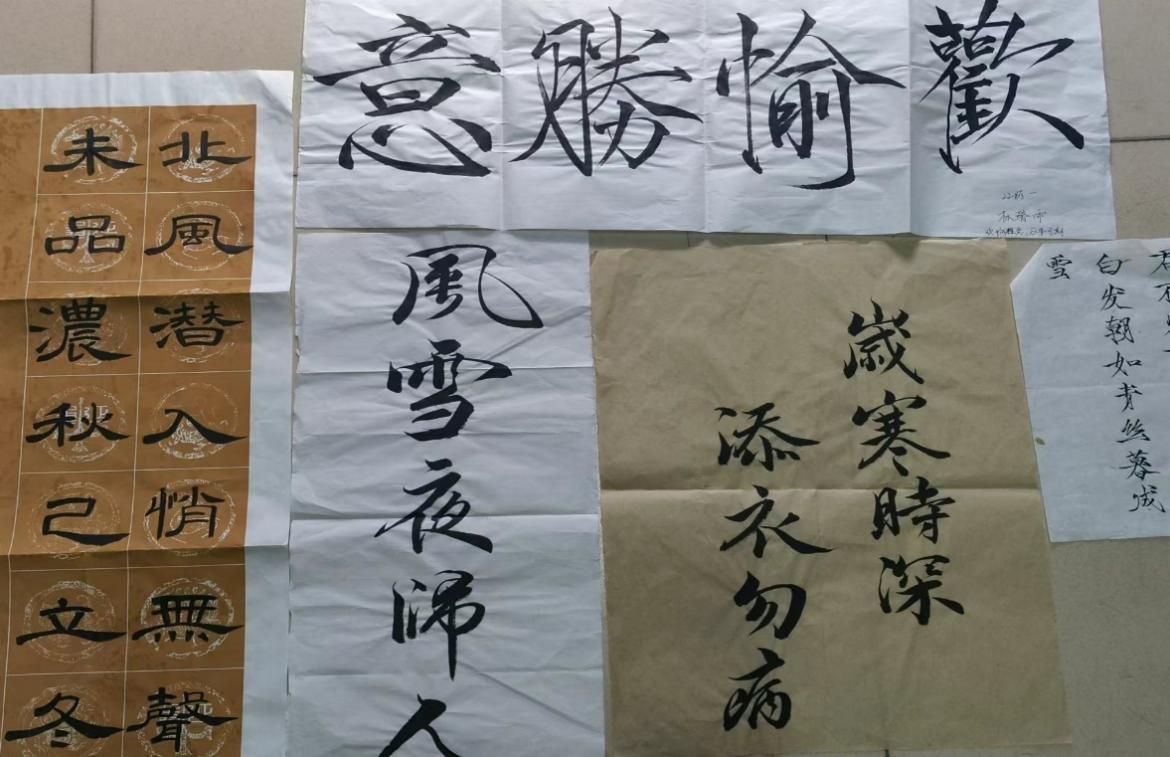 歡愉勝意
北風潜入悄無聲
未品濃秋己立冬
風雪夜歸人
歲寒時深
添衣勿病
白发朝如青丝暮成
雪